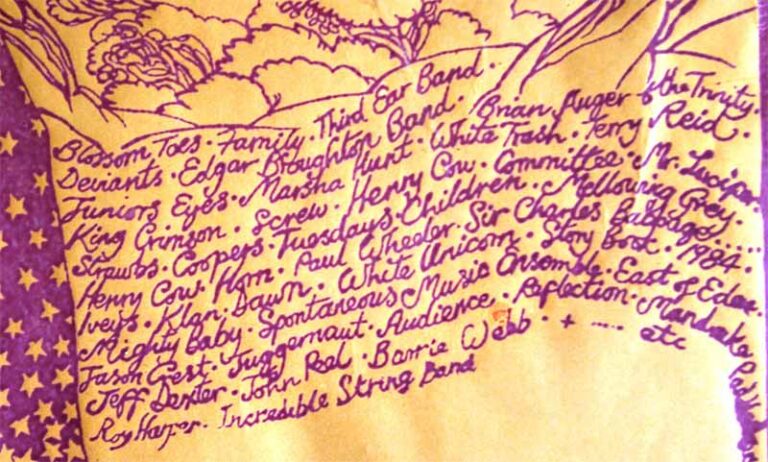 Blossom Toes · Family · Third Ear Band ·
Deviants · Edgar Broughton Band · Brian Auger & the Trinity ·
Juniors Eyes · Marsha Hunt · White Trash · Terry Reid ·
King Crimson · Screw · Henry Cow · Committee · Mr. Lucifer ·
Strawbs · Coopers · Tuesdays Children · Mellowing Grey ·
Henry Cow · Horn · Paul Wheeler · Sir Charles Babbage.....
Iveys · Klan · Dawn · White Unicorn · Story Book · 1984 ·
Mighty Baby · Spontaneous Music Ensemble · East of Eden ·
Jason Crest · Juggernaut · Audience · Reflection · Mandrake
Jeff Dexter · John Peel · Barrie Webb · + ..... etc
Roy Harper · Incredible String Band